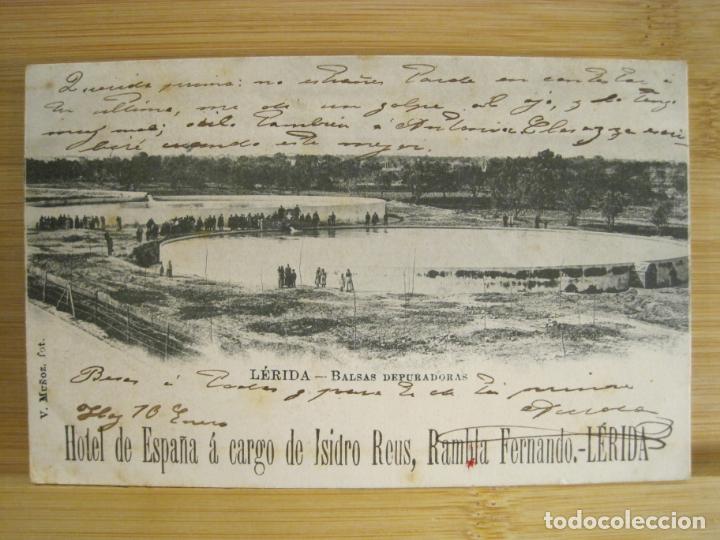 Querida prima: no estrañes tarde en contestar á
tu última, me dí un golpe al ojo, y lo tengo
muy mal; dilo también á Antonia Elas y ya escri
biré cuando esté mejor.
LÉRIDA — BALSAS DEPURADORAS
V. MUÑOZ, fot.
Besos á todos y para ti de tu prima
Hoy 10 Enero
Hotel de España á cargo de Isidro Reus, Rambla Fernando.-LÉRIDA
todocoleccion
todocoleccion.net